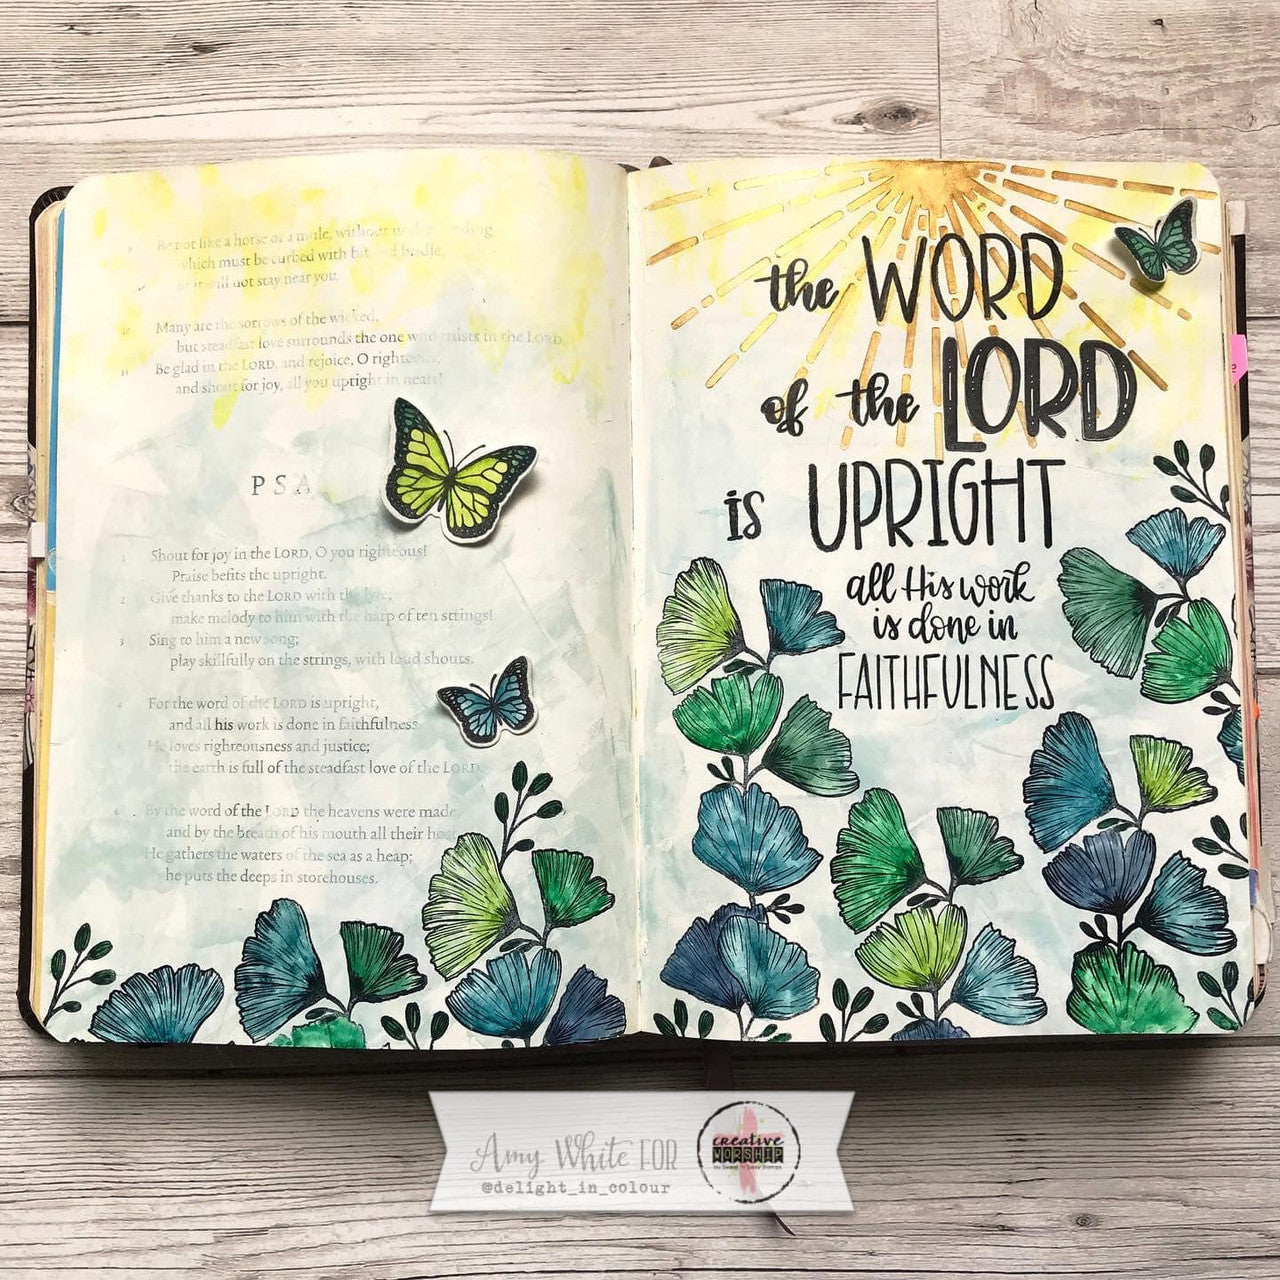 9 Be not like a horse or a mule, without understanding
which must be curbed with bit and bridle,
or it will not stay near you.
10 Many are the sorrows of the wicked,
but steadfast love surrounds the one who trusts in the LORD.
11 Be glad in the LORD, and rejoice, O righteous,
and shout for joy, all you upright in heart!
PSA
1 Shout for joy in the LORD, O you righteous!
Praise befits the upright.
2 Give thanks to the LORD with the
make melody to him with the harp of ten strings!
3 Sing to him a new song;
play skillfully on the strings, with loud shouts.
4 For the word of the LORD is upright,
and all his work is done in faithfulness
He loves righteousness and justice;
the earth is full of the steadfast love of the LORD.
6 By the word of the LORD the heavens were made,
and by the breath of his mouth all their host
He gathers the waters of the sea as a heap;
he puts the deeps in storehouses.
the WORD
of the LORD
is UPRIGHT
all His work
is done in
FAITHFULNESS
Amy White FOR
@delight_in_colour
creative
WORSHIP